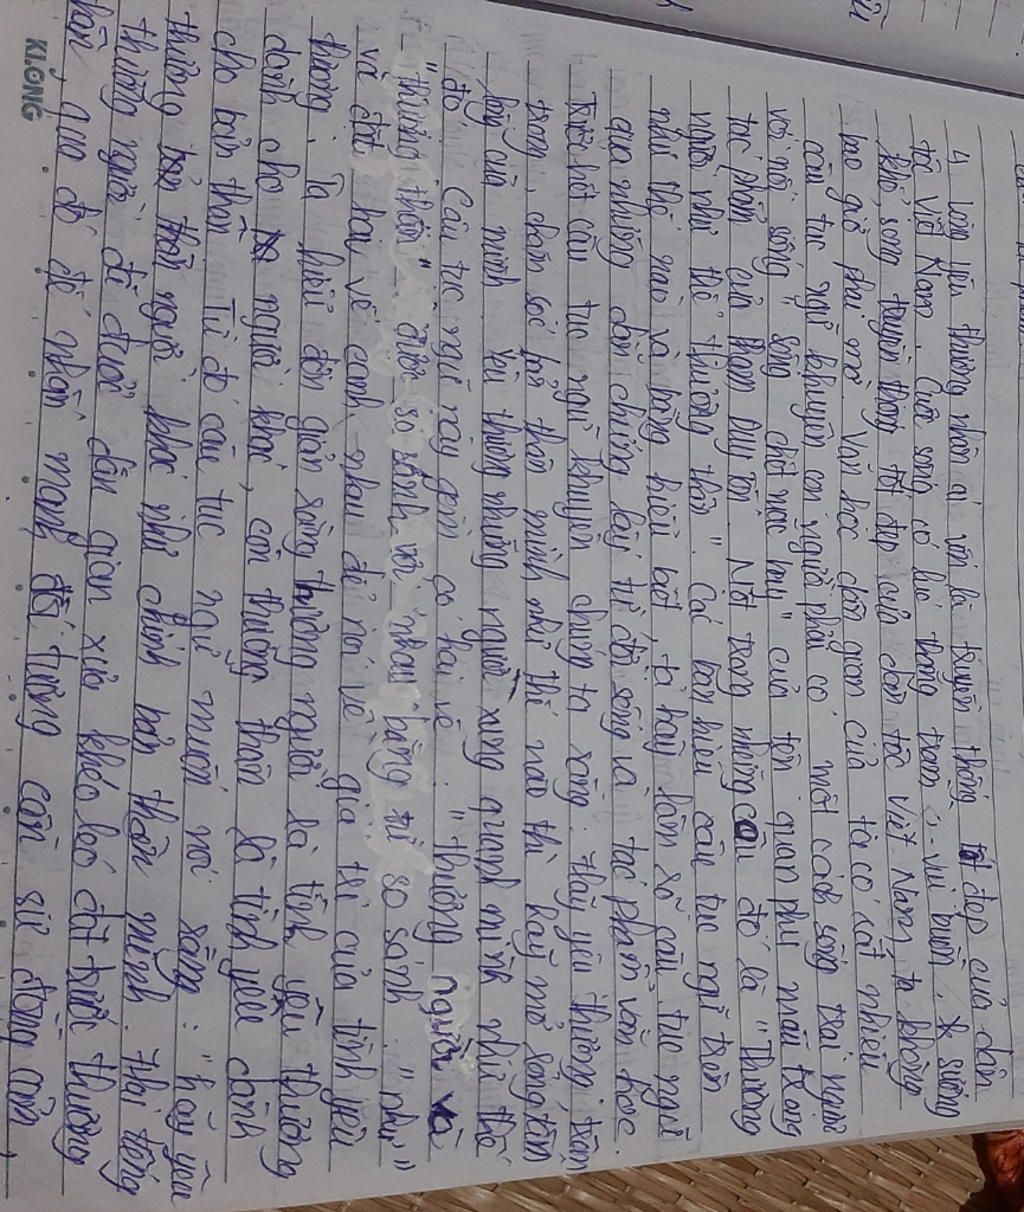 4, Lòng yêu thương nhân ái vốn là truyền thống tốt đẹp của dân
tộc Việt Nam. Cuộc sống có lúc thăng trầm, vui buồn, sướng
khổ, song truyền thống tốt đẹp của dân tộc Việt Nam ta không
bao giờ phai mờ. Văn học dân gian của ta có rất nhiều
câu tục ngữ khuyên con người phải có một cách sống trái ngược
với nói sống "sống chết mặc bay" của tên quan phụ mẫu trong
tác phẩm của Phạm Duy Tốn. Nổi trong những câu đó là "Thương
người như thể thương thân". Các bạn hiểu câu tục ngữ trên
như thế nào và bằng hiểu biết ta hãy làm rõ câu tục ngữ
qua những dẫn chứng lấy từ đời sống và tác phẩm văn học.
Trước hết câu tục ngữ khuyên chúng ta rằng: Hãy yêu thương, trân
trọng, chăm sóc bản thân mình như thế nào thì hãy mở rộng tấm
lòng của mình yêu thương những người xung quanh mình như thế
đó. Câu tục ngữ này gồm có hai vế: "thương người" và
"thương thân" được so sánh với nhau bằng từ so sánh "như"
và đặt hai vế cạnh nhau để nói về giá trị của tình yêu
thương. Ta hiểu đơn giản rằng thương người là tình yêu thương
dành cho người khác, còn thương thân là tình yêu dành
cho bản thân. Từ đó câu tục ngữ muốn nói rằng: "hãy yêu
thương người khác như chính bản thân mình. Hai tiếng
thương người để dưới dân gian xưa khéo léo đặt trước thương
thân, qua đó để nhấn mạnh đối tượng cần sự đồng cảm
KLONG